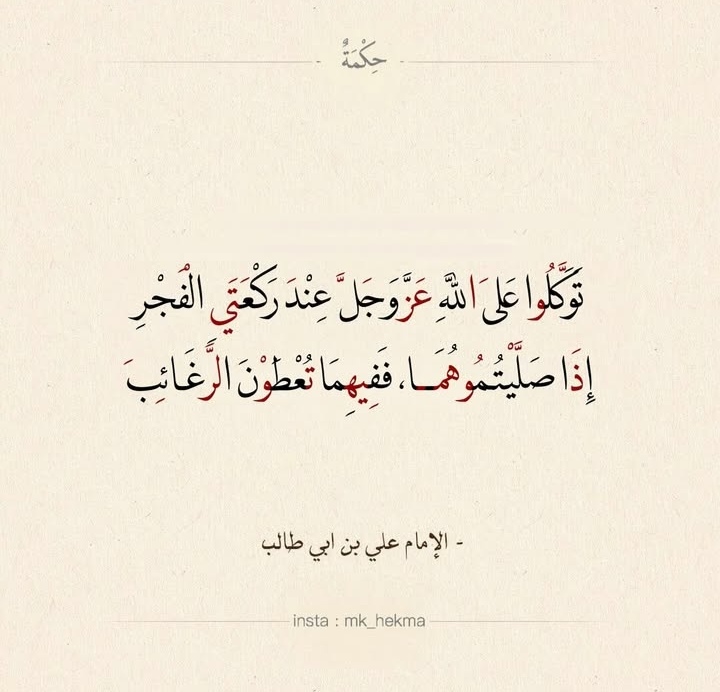 حِكْمَةٌ
تَوَكَّلُوا عَلَى اللَّهِ عَزَّ وَجَلَّ عِنْدَ رَكْعَتَيِ الْفَجْرِ
إِذَا صَلَّيْتُمُوهُمَـا، فَفِيهِمَا تُعْطَوْنَ الرَّغَائِبَ
- الإمام علي بن ابي طالب
insta : mk_hekma